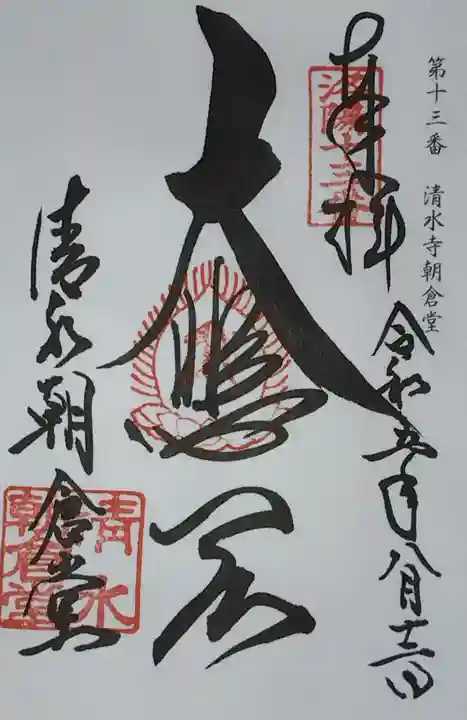 第十三番 清水寺朝倉堂
奉拝 令和五年八月十三日
洛陽十三番
大悲閣
清水朝倉堂
清水
朝倉堂